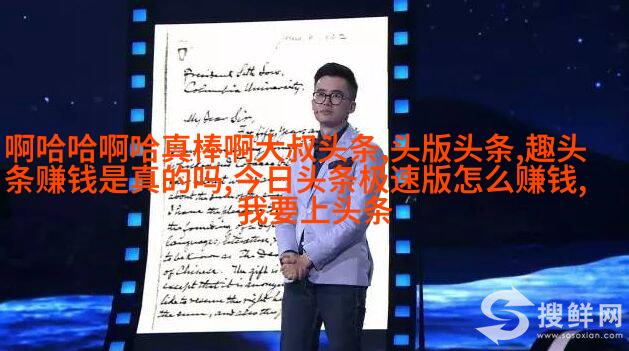 President Seth Low,
Columbia University.
My Dear Sir,
啊哈哈啊哈真棒啊大叔头条,头版头条,趣头
条赚钱是真的吗,今日头条极速版怎么赚钱,
我要上头条
languages, literature,
to be known as The Dean
of Chinese. The gift is
except that it is
like to reserve the right
the sum, and also
搜鲜网
www.sosoxian.com